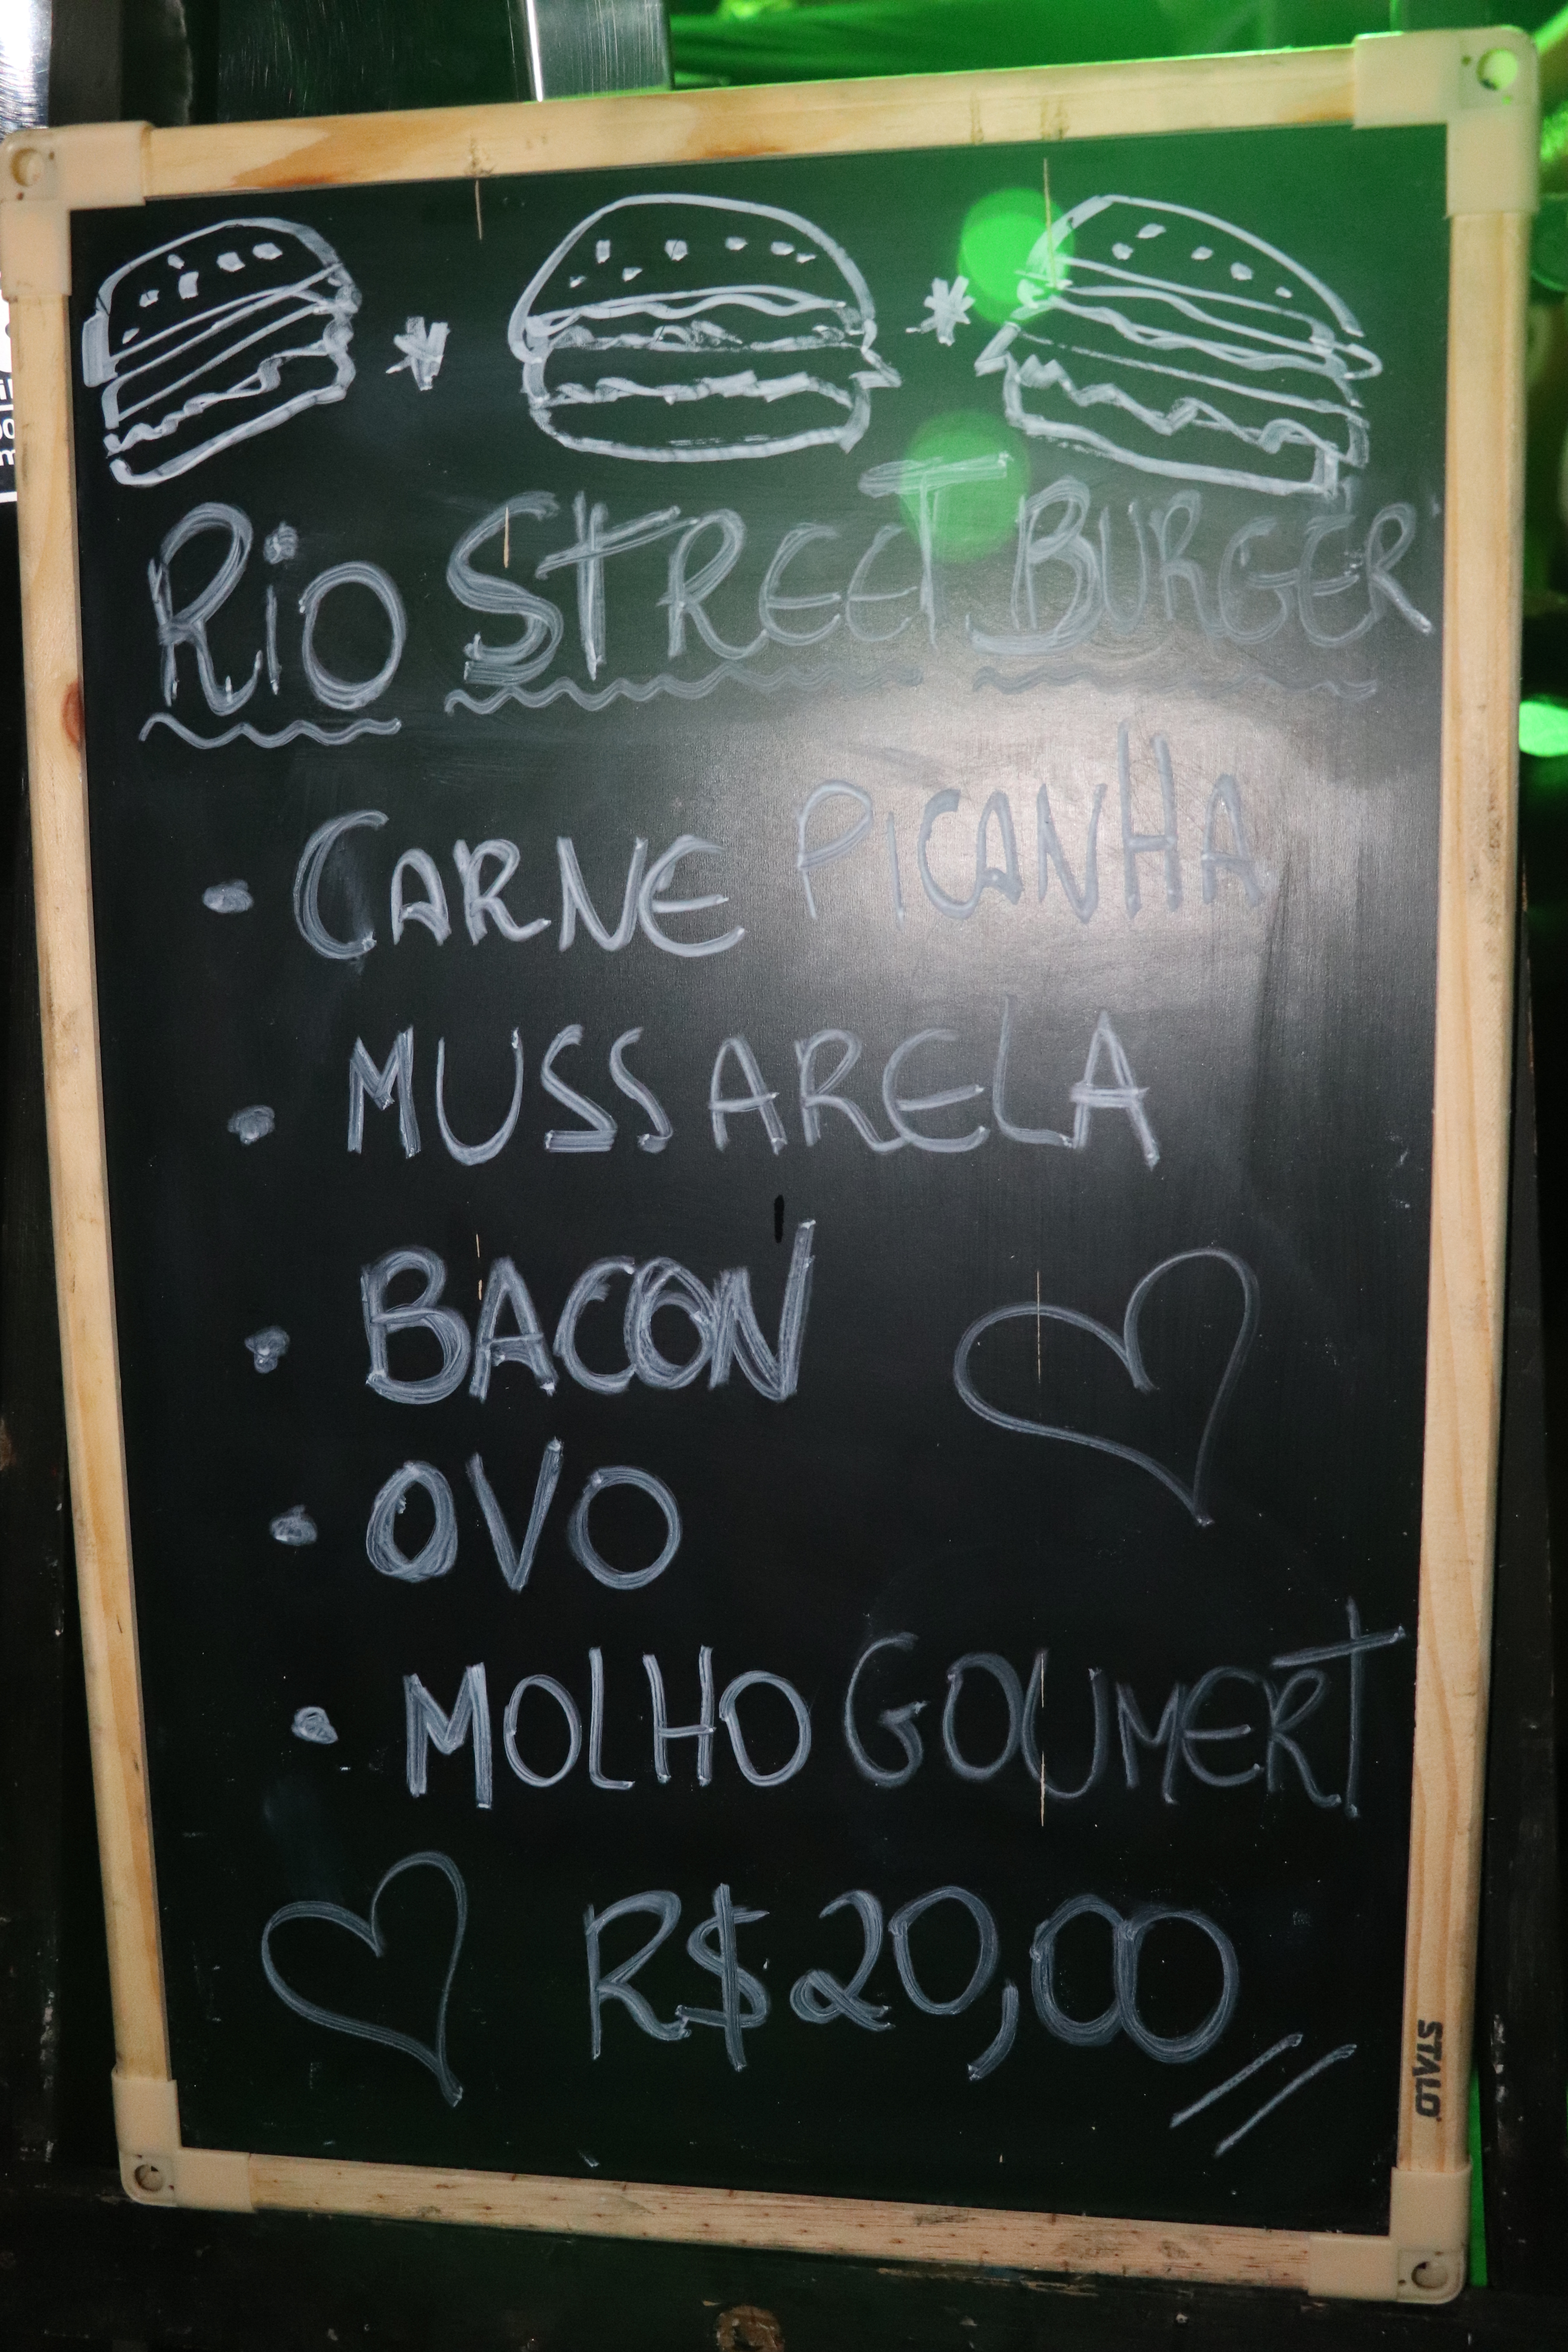 Rio STREET BURGER
· CARNE PICANHA
· MUSSARELA
· BACON
· OVO
· MOLHO GOUMERT
R$20,00//
STALO